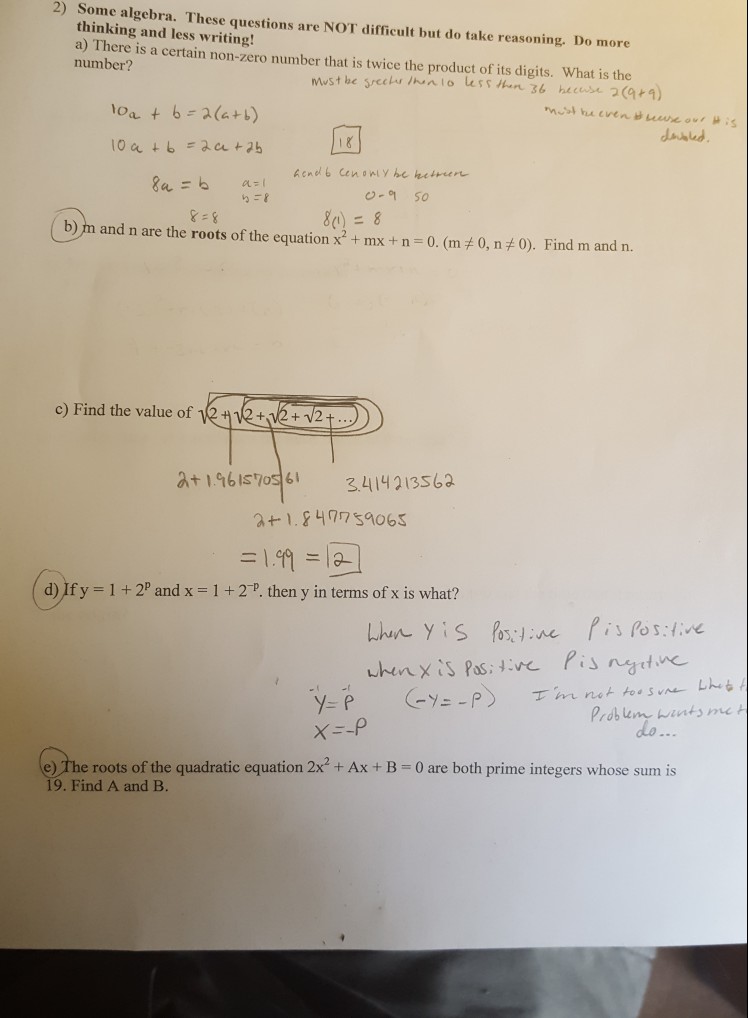 2) Some algebra. These questions are NOT difficult but do take reasoning. Do more
thinking and less writing!
a) There is a certain non-zero number that is twice the product of its digits. What is the
number?
Must be greater then 10 less then 36 because 2(9+9)
must be even # because our # is
doubled.
10a + b = 2(a+b)
10a + b = 2a + 2b
18
8a = b
a=1
b=8
a and b can only be between
0-9 so
8=8
8(1) = 8
b) m and n are the roots of the equation x² + mx + n = 0. (m ≠ 0, n ≠ 0). Find m and n.
c) Find the value of √2+√2+√2+√2+...
2+1.961570561
3.414213562
2+1.847759065
= 1.99 = 2
d) If y = 1 + 2ᵖ and x = 1 + 2⁻ᵖ. then y in terms of x is what?
When Y is Positive P is Positive
when x is Positive P is negative
-1 -1
Y=P
(-Y=-P)
I'm not too sure what
Problem wants me t
X=-P
do...
e) The roots of the quadratic equation 2x² + Ax + B = 0 are both prime integers whose sum is
19. Find A and B.